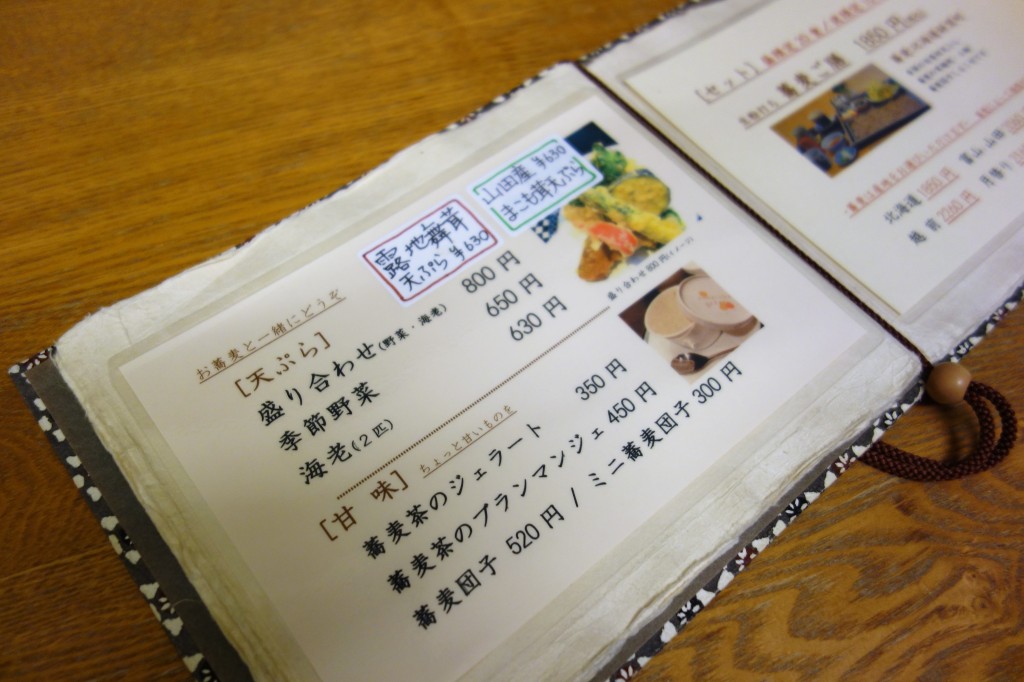 露地舞茸
天ぷら ¥630
山田産 ¥630
まこも茸天ぷら
お蕎麦と一緒にどうぞ
[天ぷら]
盛り合わせ(野菜・海老) 800円
季節野菜 650円
海老(2匹) 630円
盛り合わせ800円イメージ
[甘 味] ちょっと甘いものを
蕎麦茶のジェラート 350円
蕎麦茶のブランマンジェ 450円
蕎麦団子 520円 / ミニ蕎麦団子 300円
[セット]
蕎麦ご膳 1850円
北海道
富山 山田
越前